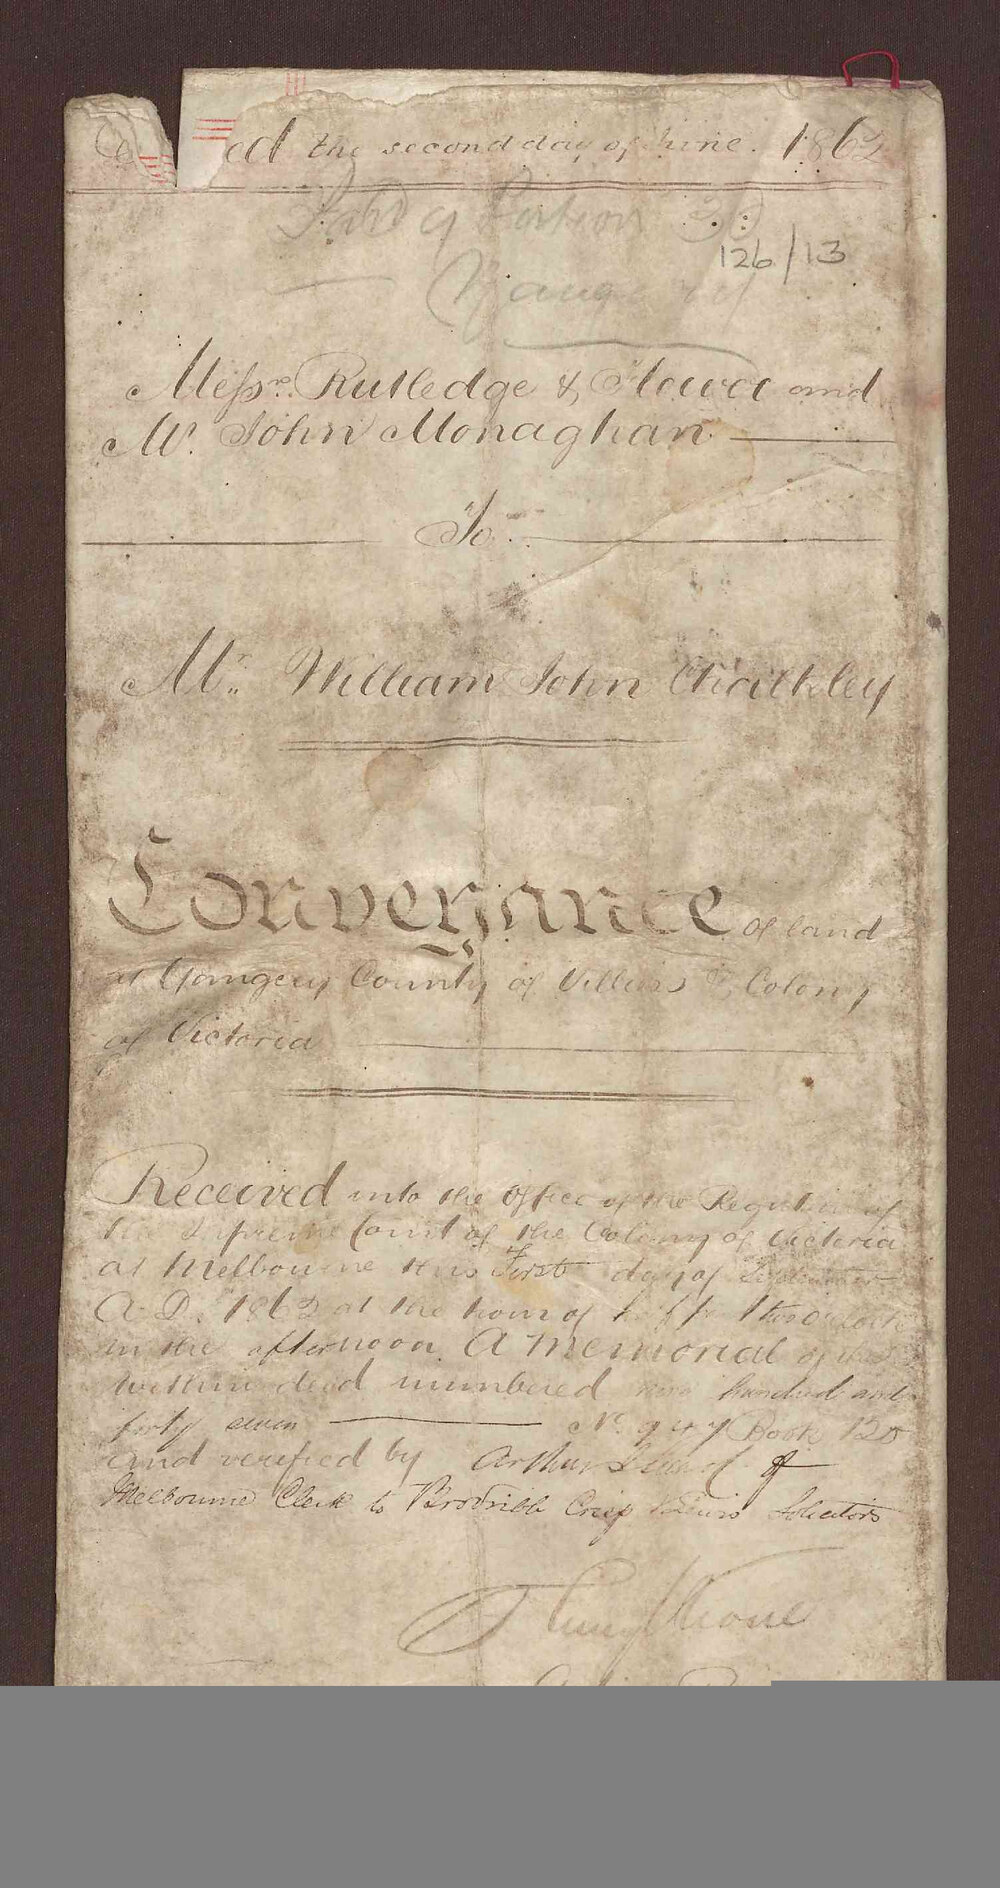 ed the second day of June. 1862
Part of Portion 30
126/13
Yangery
Messrs. Rutledge & Flower and
Mr. John Monaghan
To
Mr. William John
Conveyance of land
at Yangery County of Villiers & Colony
of Victoria
Received into the Office of the Registrar of
the Supreme Court of the Colony of Victoria
at Melbourne this First day of September
A.D. 1862 at the hour of half past two oclock
in the afternoon A Memorial of the
within deed numbered nine hundred and
forty seven No. 947 Book 120
and verified by Arthur of
Melbourne Clerk to Brodribb Crisp & Lewis Solicitors